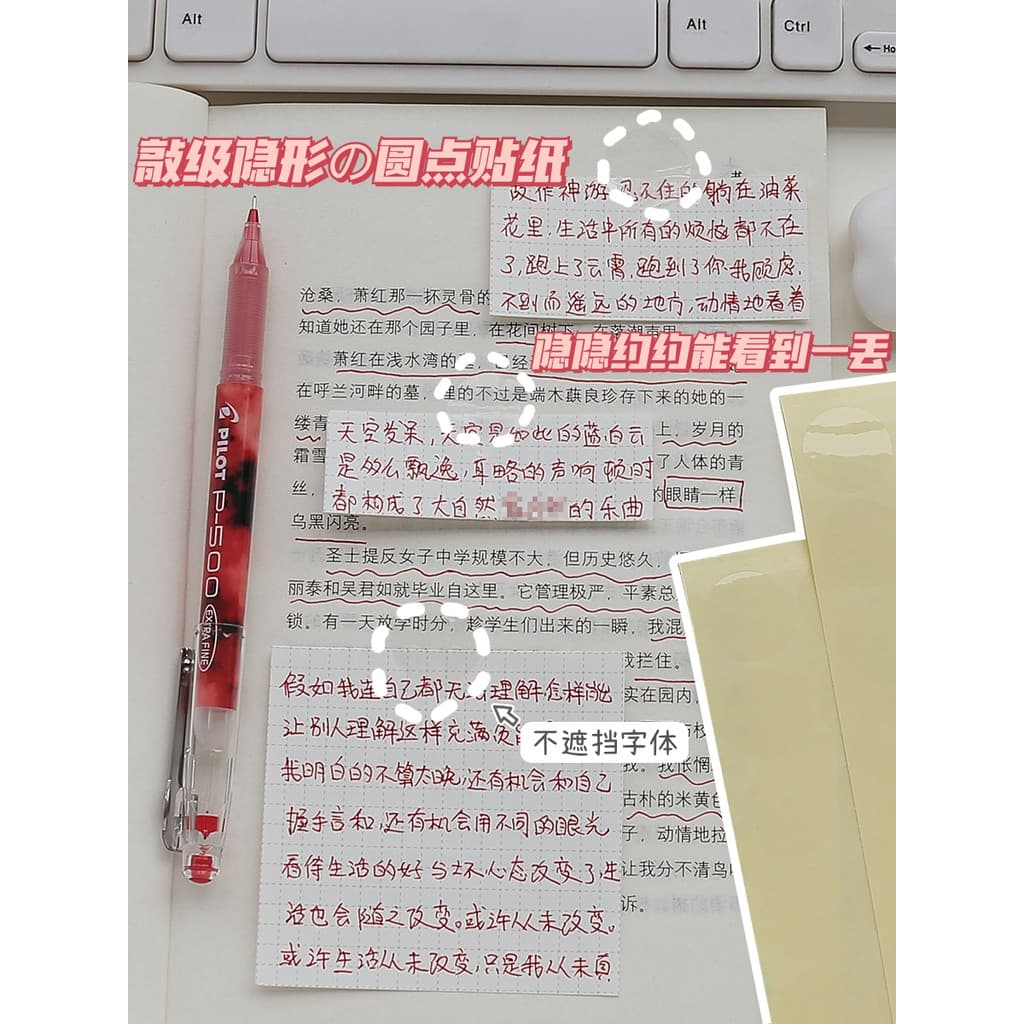 Alt
Alt
Ctrl
敲级隐形の圆点贴纸
故作神游忍不住的躺在油菜
花里.生活中所有的烦恼都不在
了,跑上了云霄,跑到了你我顾虑.
不到而遥远的地方,动情地看着
沧桑，萧红那一抔灵骨的
知道她还在那个园子里，在花间树下，在菜湖声里
隐隐约约能看到一丢
萧红在浅水湾的 已经
在呼兰河畔的墓，里的不过是端木蕻良珍存下来的她的一
缕青 上，岁月的
天空发呆,天空是如此的蓝白云
霜雪 了人体的青
是多么飘逸,耳略的声响顿时
丝， 的眼睛一样
都构成了大自然 的乐曲
乌黑闪亮。
圣士提反女子中学规模不大，但历史悠久，
丽泰和吴君如就毕业自这里。它管理极严，平素总
锁。有一天放学时分，趁学生们出来的一瞬，我混
我拦住。
假如我连自己都无 理解怎样能
实在园内，
让别人理解这样充满负
不遮挡字体
我。我怅惘
我明白的不算太晚,还有机会和自己
古朴的米黄色
握手言和,还有机会用不同的眼光
子，动情地拉
看待生活的好与坏心态改变了生
让我分不清鸟
活也会随之改变。或许从未改变。
诉。
或许生活从未改变,只是我从未真
PILOT
P-500
EXTRA FINE